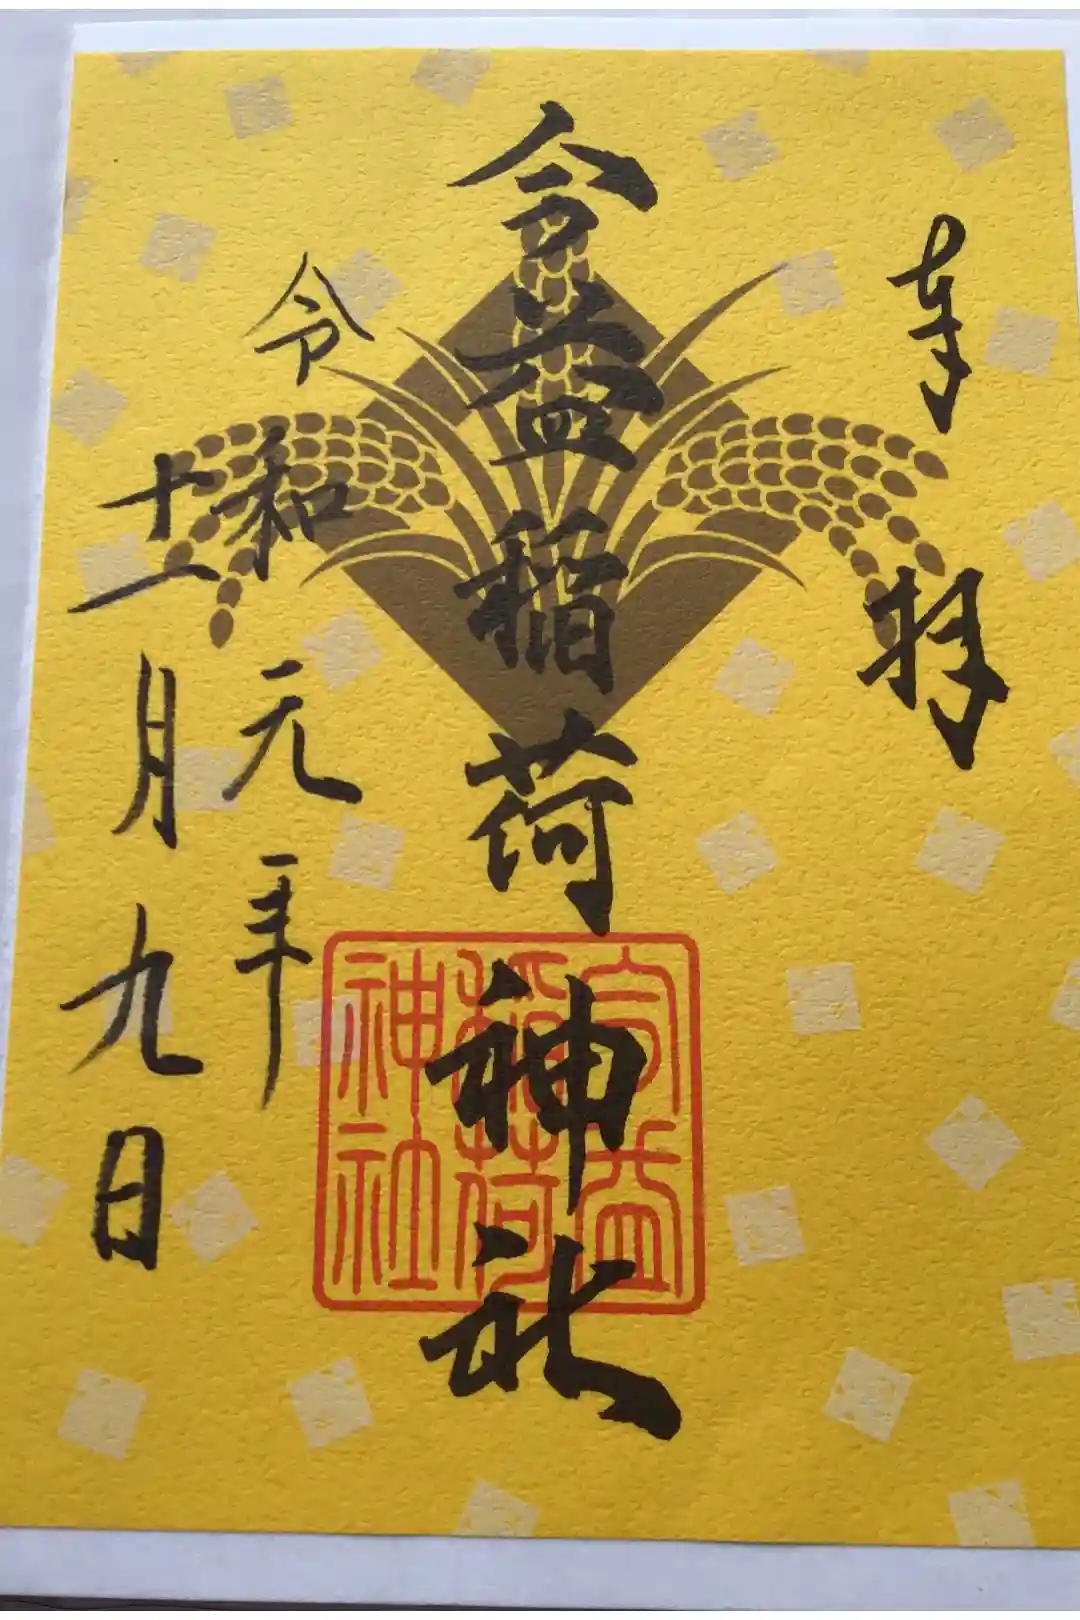 奉拝
今益稲荷神社
令和元年
十一月九日
今益
稲荷
神社